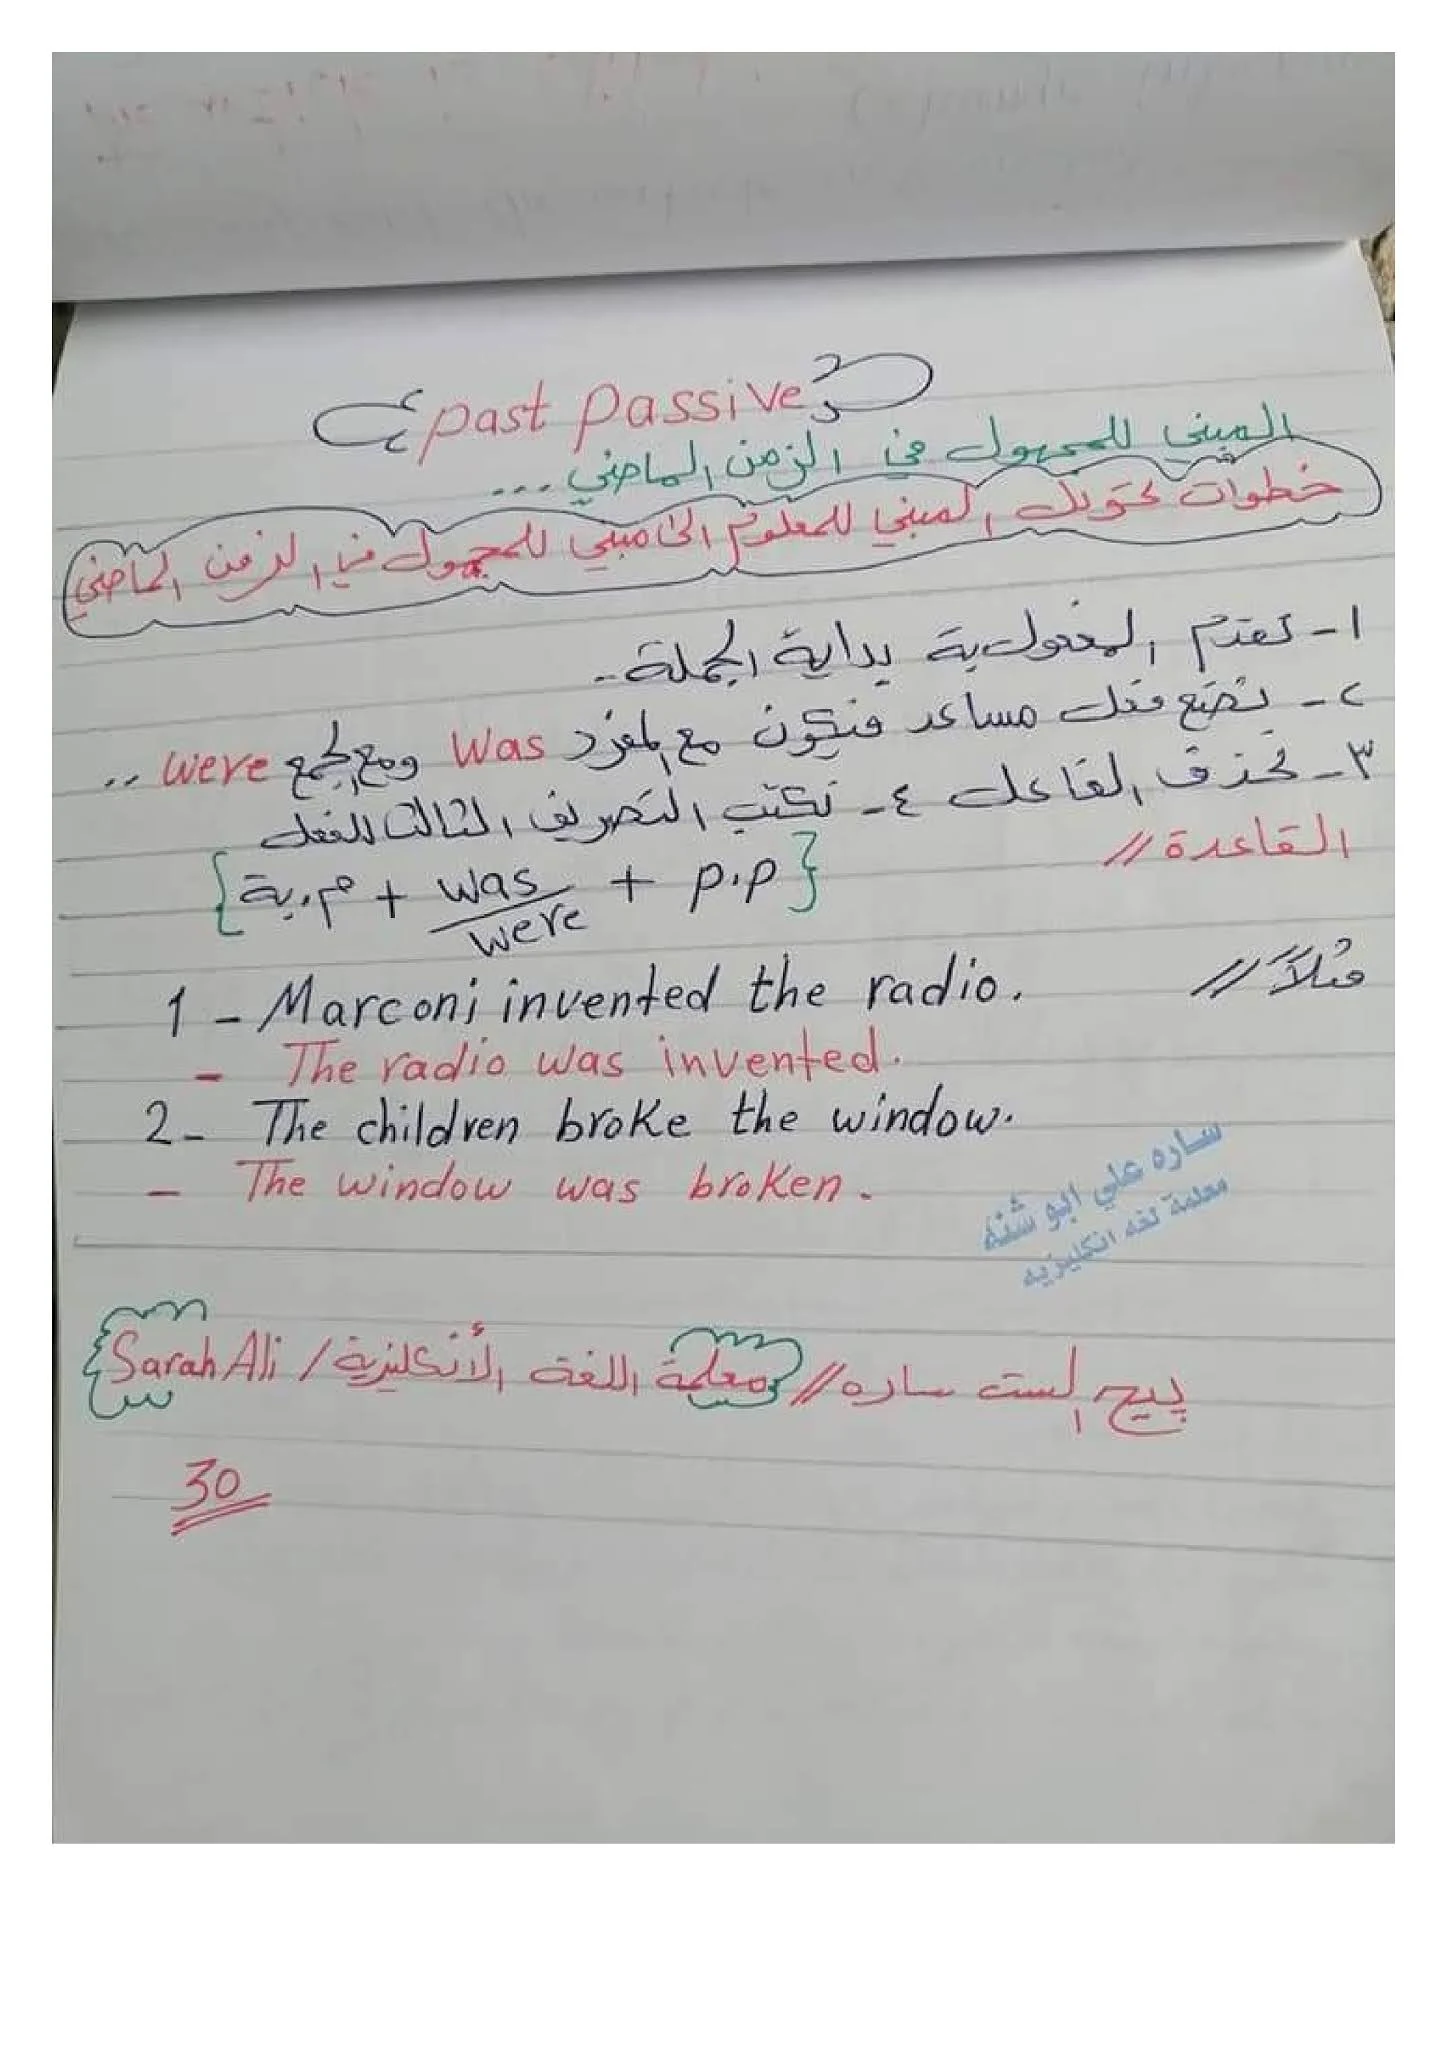 past passive
المبني للمجهول في الزمن الماضي ...
خطوات تحويل المبني للمعلوم الى مبني للمجهول في الزمن الماضي
١- نقدم المفعول به بداية الجملة ..
٢- نضع فعل مساعد فيكون مع المفرد was ومع الجمع were ..
٣- نحذف الفاعل ٤- نكتب التصريف الثالث للفعل
القاعدة //
{ م.به + was/were + p.p }
مثلاً //
1 - Marconi invented the radio.
- The radio was invented.
2- The children broke the window.
- The window was broken.
ساره علي ابو شنه
معلمة لغه انكليزيه
بيج الست ساره // معلمة اللغة الأنكليزية / Sarah Ali
30